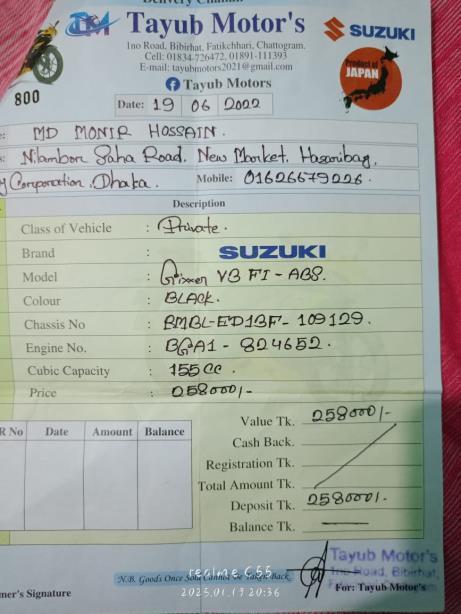 Delivery Challan
Tayub Motor's
SUZUKI
1no Road, Bibirhat, Fatikchhari, Chattogram.
Cell: 01834-726472, 01891-111393
E-mail: tayubmotors2021@gmail.com
Tayub Motors
Product of
JAPAN
800
Date: 19 06 2022
MD MONIR HOSSAIN.
Nilambor Saha Road, New Market, Hazaribag,
Corporation, Dhaka. Mobile: 01626679226.
Description
Class of Vehicle : Private.
Brand : SUZUKI
Model : Gixxer V3 FI - ABS.
Colour : BLACK.
Chassis No : BMBL-ED13F-109129.
Engine No. : BGA1 - 824652.
Cubic Capacity : 155cc.
Price : 258000/-
R No Date Amount Balance
Value Tk. 258000/-
Cash Back.
Registration Tk.
Total Amount Tk.
Deposit Tk. 258000/-
Balance Tk. —
Tayub Motor's
1no Road, Bibirhat,
N.B. Goods Once Sold Cannot be Taken Back
mer's Signature
For: Tayub Motor's
realme C55
2025.01.19 20:36